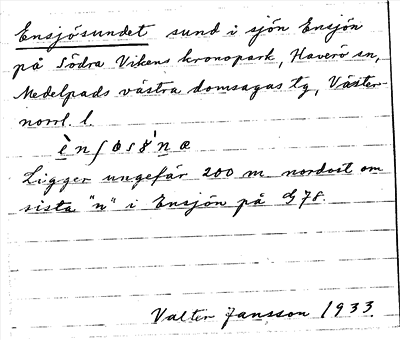 Ensjösundet sund i sjön Ensjön
på Södra Vikens kronopark, Haverö sn,
Medelpads västra domsagas tg, Väster-
norrl. l.
Ligger ungefär 200 m nordost om
sista "n" i Ensjön på G 78.
Valter Jansson 1933